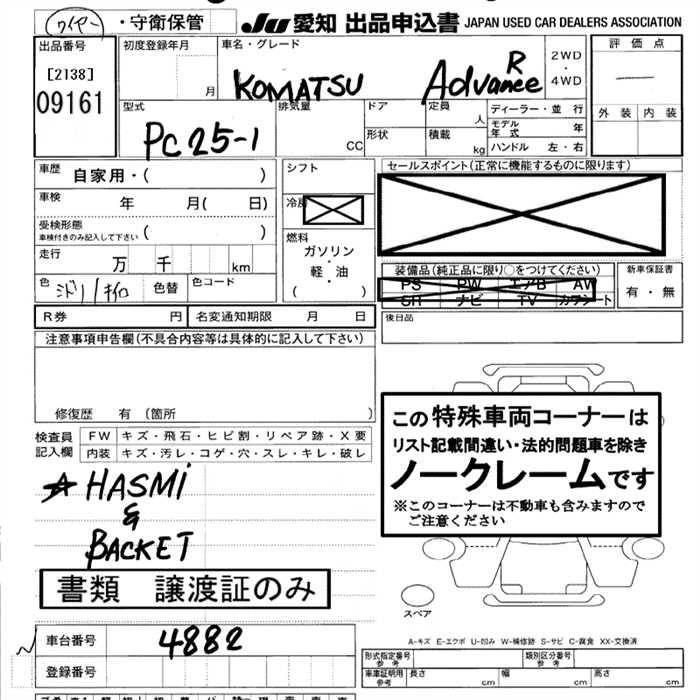 ワイヤー ・守衛保管 JU 愛知 出品申込書 JAPAN USED CAR DEALERS ASSOCIATION
出品番号 初度登録年月 車名・グレード 評価点
[2138] 09161 月 KOMATSU Advance R 2WD・4WD
外装 内装
型式 排気量 ドア 定員 ディーラー・並行
PC25-1 CC 形状 人 積載 kg モデル年式 年
ハンドル 左・右
車歴 自家用・( ) シフト セールスポイント(正常に機能するものに限ります)
車検 年 月( 日)
受検形態 車検付きのみ記入して下さい ( ) 燃料
走行 万 千 km ガソリン・軽・油 ( )
装備品(純正品に限り○をつけてください) 新車保証書
PS PW エアB AW 有・無
SR ナビ TV カワシート
色 色替 色コード
R券 円 名変通知期限 月 日 後日品
注意事項申告欄(不具合内容等は具体的に記入して下さい)
修復歴 有 (箇所 )
この特殊車両コーナーは
リスト記載間違い・法的問題車を除き
ノークレームです
※このコーナーは不動車も含みますので
ご注意ください
検査員記入欄 FW キズ・飛石・ヒビ割・リペア跡・X要
内装 キズ・汚レ・コゲ・穴・スレ・キレ・破レ
☆ HASMi
&
BACKET
書類 譲渡証のみ
スペア
A-キズ E-エクボ U-凹み W-補修跡 S-サビ C-腐食 XX-交換済
車台番号 4882
形式指定番号 参考 類別区分番号 参考
登録番号 車車証明用 参考 長さ 幅 高さ